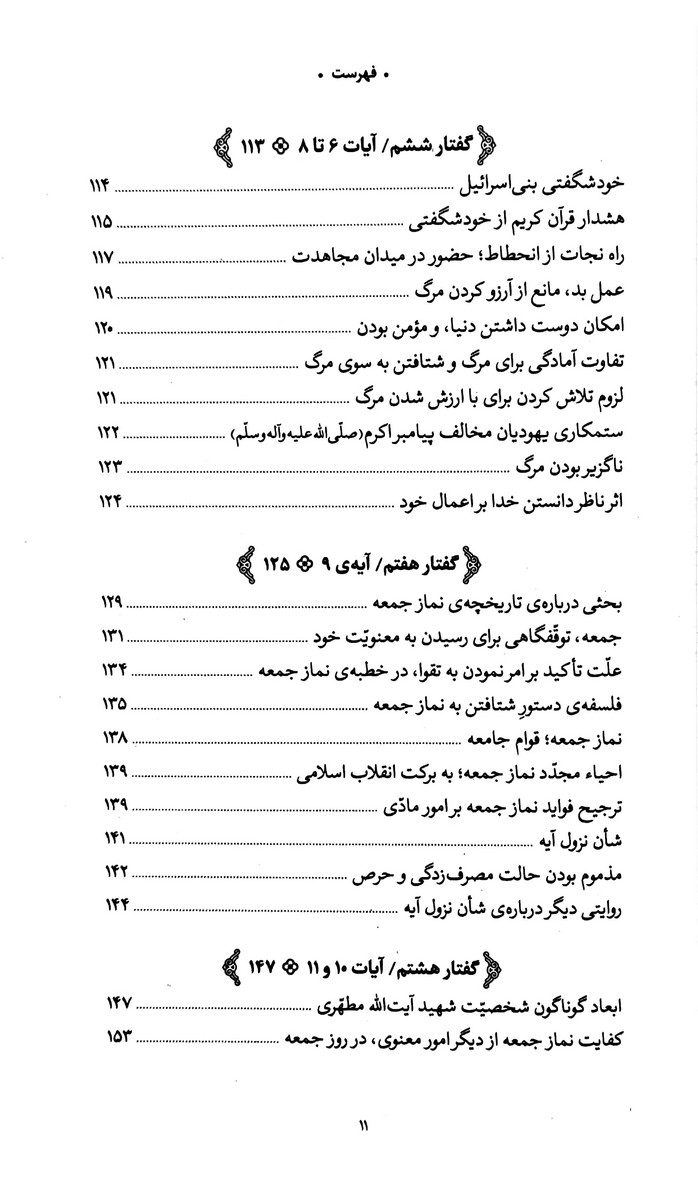 • فهرست •
گفتار ششم/ آیات ۶ تا ۸ ❖ ۱۱۳
خودشگفتی بنی‌اسرائیل ........ ۱۱۴
هشدار قرآن کریم از خودشگفتی ........ ۱۱۵
راه نجات از انحطاط؛ حضور در میدان مجاهدت ........ ۱۱۷
عمل بد، مانع از آرزو کردن مرگ ........ ۱۱۹
امکان دوست داشتن دنیا، و مؤمن بودن ........ ۱۲۰
تفاوت آمادگی برای مرگ و شتافتن به سوی مرگ ........ ۱۲۱
لزوم تلاش کردن برای با ارزش شدن مرگ ........ ۱۲۱
ستمکاری یهودیان مخالف پیامبر اکرم (صلّی‌الله‌علیه‌وآله‌وسلّم) ........ ۱۲۲
ناگزیر بودن مرگ ........ ۱۲۳
اثر ناظر دانستن خدا بر اعمال خود ........ ۱۲۴
گفتار هفتم/ آیه‌ی ۹ ❖ ۱۲۵
بحثی درباره‌ی تاریخچه‌ی نماز جمعه ........ ۱۲۹
جمعه، توقّفگاهی برای رسیدن به معنویّت خود ........ ۱۳۱
علّت تأکید بر امر نمودن به تقوا، در خطبه‌ی نماز جمعه ........ ۱۳۴
فلسفه‌ی دستورِ شتافتن به نماز جمعه ........ ۱۳۵
نماز جمعه؛ قوام جامعه ........ ۱۳۸
احیاء مجدّد نماز جمعه؛ به برکت انقلاب اسلامی ........ ۱۳۹
ترجیح فواید نماز جمعه بر امور مادّی ........ ۱۳۹
شأن نزول آیه ........ ۱۴۱
مذموم بودن حالت مصرف‌زدگی و حرص ........ ۱۴۲
روایتی دیگر درباره‌ی شأن نزول آیه ........ ۱۴۴
گفتار هشتم/ آیات ۱۰ و ۱۱ ❖ ۱۴۷
ابعاد گوناگون شخصیّت شهید آیت‌الله مطهّری ........ ۱۴۷
کفایت نماز جمعه از دیگر امور معنوی، در روز جمعه ........ ۱۵۳
۱۱